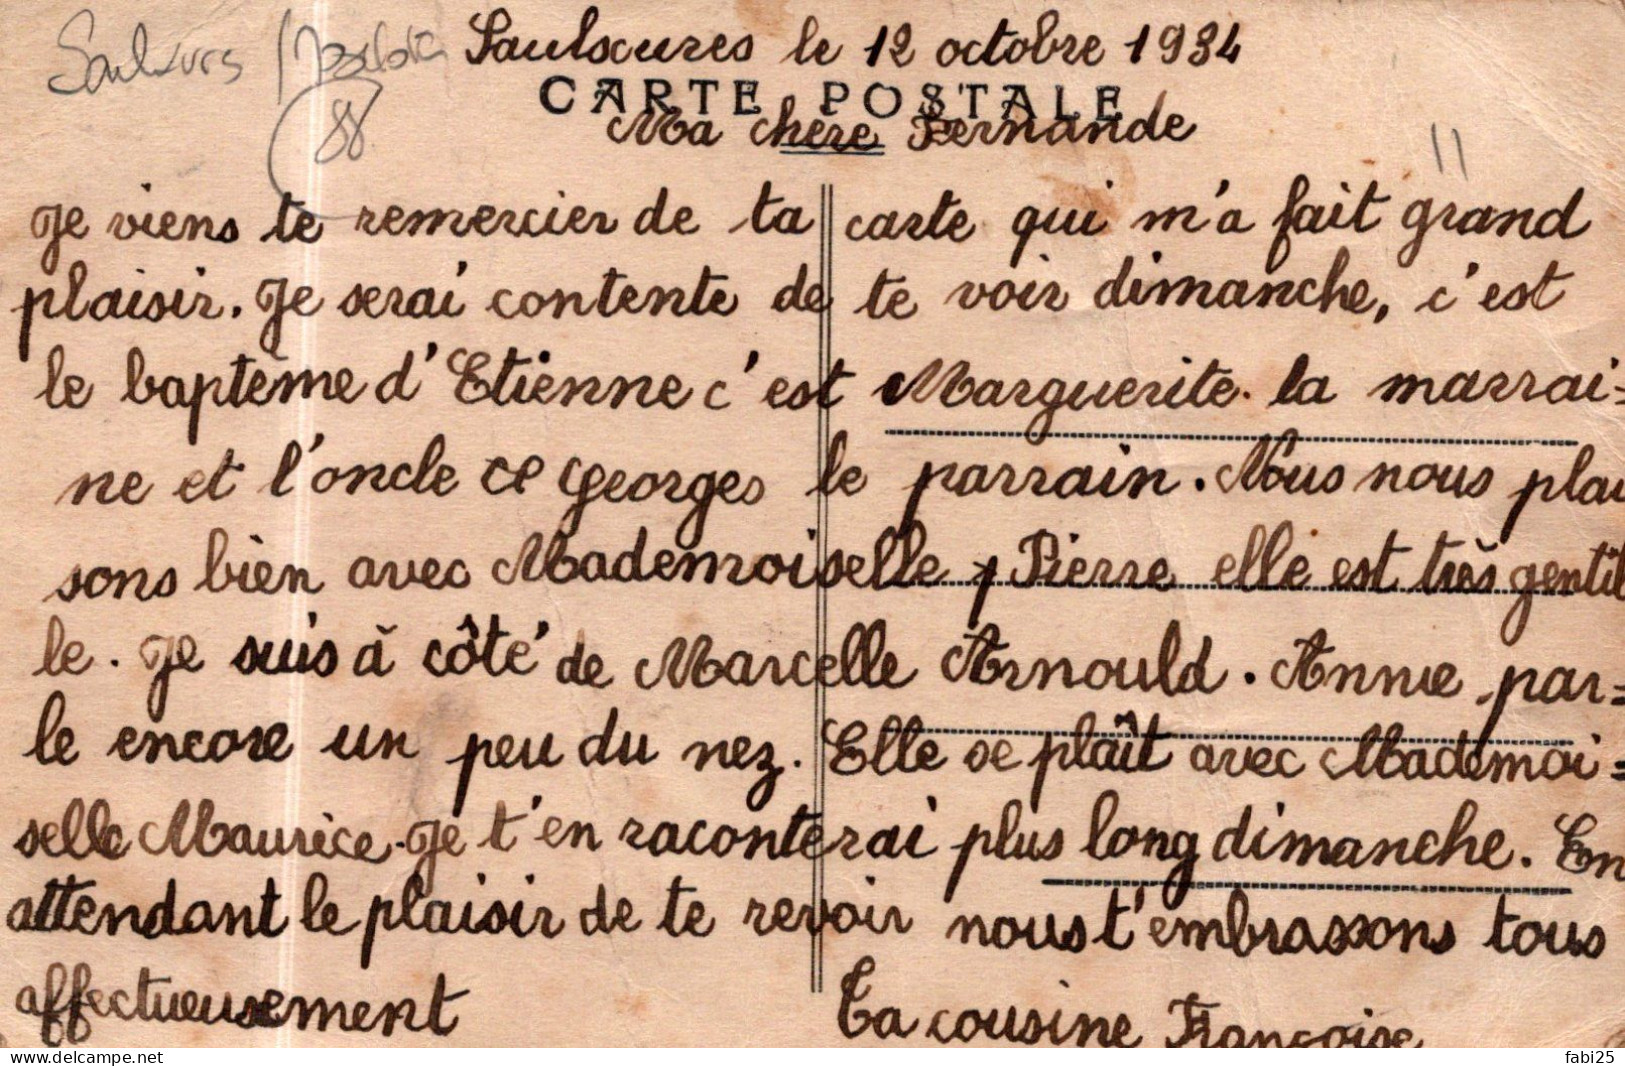 Saulxures Saulscures le 12 octobre 1934
CARTE POSTALE
88
Ma chère Fernande
11
Je viens te remercier de ta carte qui m'a fait grand
plaisir. Je serai contente de te voir dimanche, c'est
le baptême d'Etienne c'est Marguerite la marrai=
ne et l'oncle Georges le parrain. Nous nous plai
sons bien avec Mademoiselle Pierre elle est très gentil
le. Je suis à côté de Marcelle Arnould. Annie par=
le encore un peu du nez. Elle se plaît avec Mademoi=
selle Maurice. Je t'en raconterai plus long dimanche. En
attendant le plaisir de te revoir nous t'embrassons tous
affectueusement
Ta cousine Françoise
fabi25